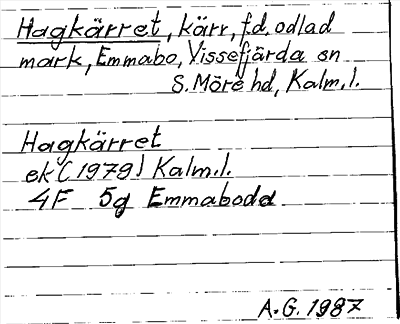 Hagkärret, kärr, f.d. odlad
mark, Emmabo, Vissefjärda sn
S. Möre hd, Kalm.l.
Hagkärret
ek (1979) Kalm.l.
4F 5g Emmaboda
A.G. 1987